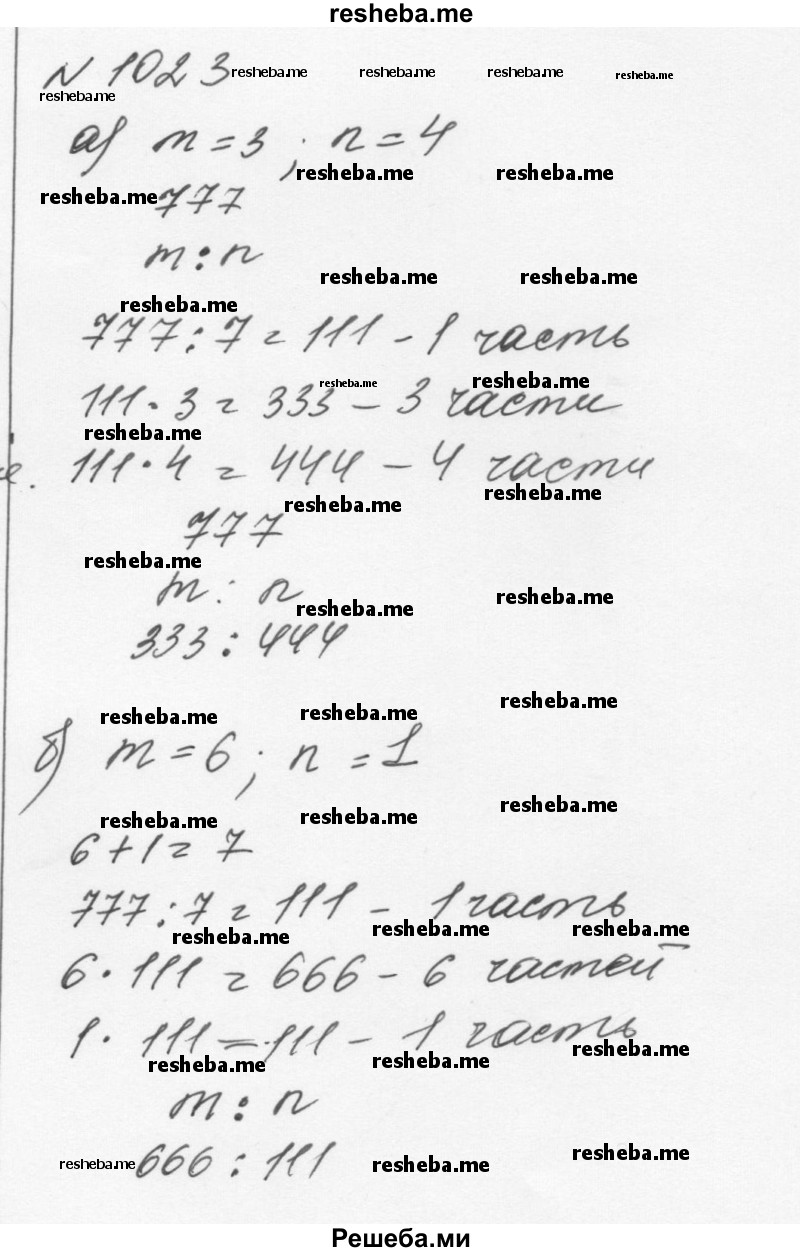 resheba.me
№ 1023 resheba.me resheba.me resheba.me resheba.me
resheba.me
а) m = 3 ; n = 4
resheba.me resheba.me
resheba.me 777
m : n
resheba.me resheba.me
resheba.me
777 : 7 = 111 - 1 часть
resheba.me resheba.me
111 · 3 = 333 - 3 части
resheba.me
111 · 4 = 444 - 4 части
resheba.me resheba.me
777
resheba.me
m : n
resheba.me resheba.me
333 : 444
resheba.me
resheba.me resheba.me
б) m = 6 ; n = 1
resheba.me
resheba.me resheba.me
6 + 1 = 7
777 : 7 = 111 - 1 часть
resheba.me resheba.me resheba.me
6 · 111 = 666 - 6 частей
1 · 111 = 111 - 1 часть
resheba.me resheba.me resheba.me
m : n
resheba.me 666 : 111 resheba.me resheba.me
Решеба.ми